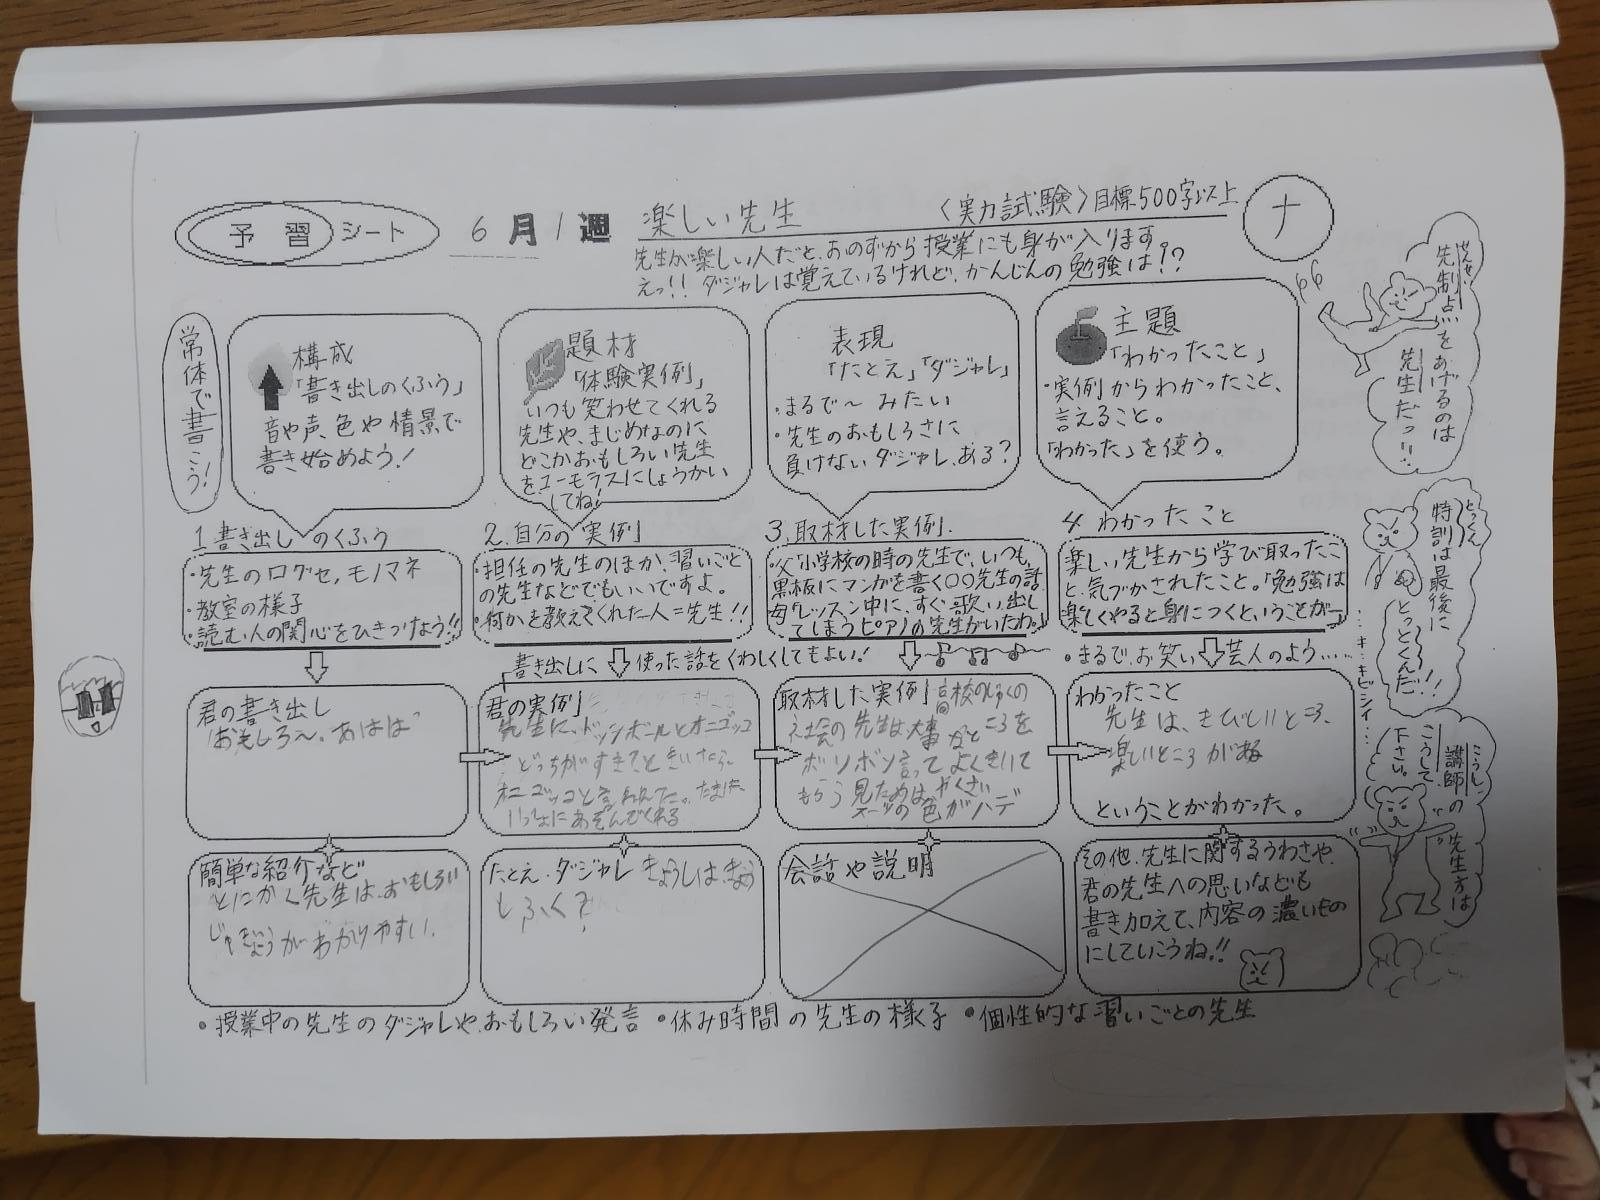 予習シート
6月1週
楽しい先生
〈実力試験〉目標500字以上
ナ
先生が楽しい人だと、おのずから授業にも身が入ります。
えっ!! ダジャレは覚えているけれど、かんじんの勉強は!?
常体で書こう!
構成
「書き出しのくふう」
音や声、色や情景で
書き始めよう!
題材
「体験実例」
いつも笑わせてくれる
先生や、まじめなのに
どこかおもしろい先生
をユーモラスにしょうかい
してね!
表現
「たとえ」「ダジャレ」
・まるで〜みたい
・先生のおもしろさに
負けないダジャレ、ある?
主題
「わかったこと」
・実例からわかったこと、
言えること。
「わかった」を使う。
1.書き出しのくふう
・先生の口グセ,モノマネ
・教室の様子
・読む人の関心をひきつけよう!!
2.自分の実例
・担任の先生のほか、習いごと
の先生などでもいいですよ。
・何かを教えてくれた人=先生!!
3.取材した実例.
・父「小学校の時の先生で、いつも、
黒板にマンガを書く〇〇先生の話
母「レッスン中に、すぐ歌い出し
てしまうピアノの先生がいたわ。」
4.わかったこと
楽しい先生から学び取ったこ
と、気づかされたこと。「勉強は
楽しくやると身につくということが〜
書き出しに使った話をくわしくしてもよい!
・まるで、お笑い芸人のよう.....
君の書き出し
「おもしろ〜。あはは」
君の実例
先生に、ドッジボールとオニゴッコ
どっちがすき?ときいたら、
オニゴッコと言われた。たまに、
いっしょにあそんでくれる
取材した実例
高校のゆくの
社会の先生は、大事なところを
ボソボソ言ってよくきいて
もらう 見ためはやくざ
スーツの色がハデ
わかったこと
先生は、きびしいところ、
楽しいところがある
ということがわかった。
簡単な紹介など
とにかく先生は、おもしろい
じゅぎょうがわかりやすい。
たとえ・ダジャレ
きょうしは、きょう
しふく?
会話や説明
その他、先生に関するうわさや、
君の先生への思いなども
書き加えて、内容の濃いもの
にしていこうね!!
・授業中の先生のダジャレや、おもしろい発言 ・休み時間の先生の様子 ・個性的な習いごとの先生
せんせい
先制点をあげるのは
先生だっ!!
とっくん
特訓は最後に
とっとくんだ!!
...キ...キビシイ...
こうし
講師の先生方は
こうして
下さい。